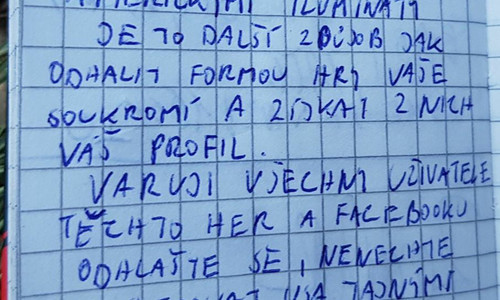 ILUMINÁTI
JE TO DALŠÍ ZPŮSOB JAK
ODHALIT FORMOU HRY VAŠE
SOUKROMÍ A ZÍSKAT Z NICH
VÁŠ PROFIL.
VARUJI VŠECHNY UŽIVATELE
TĚCHTO HER A FACEBOOKU
ODHLAŠTE SE, NENECHTE
USA TAJNÝMI